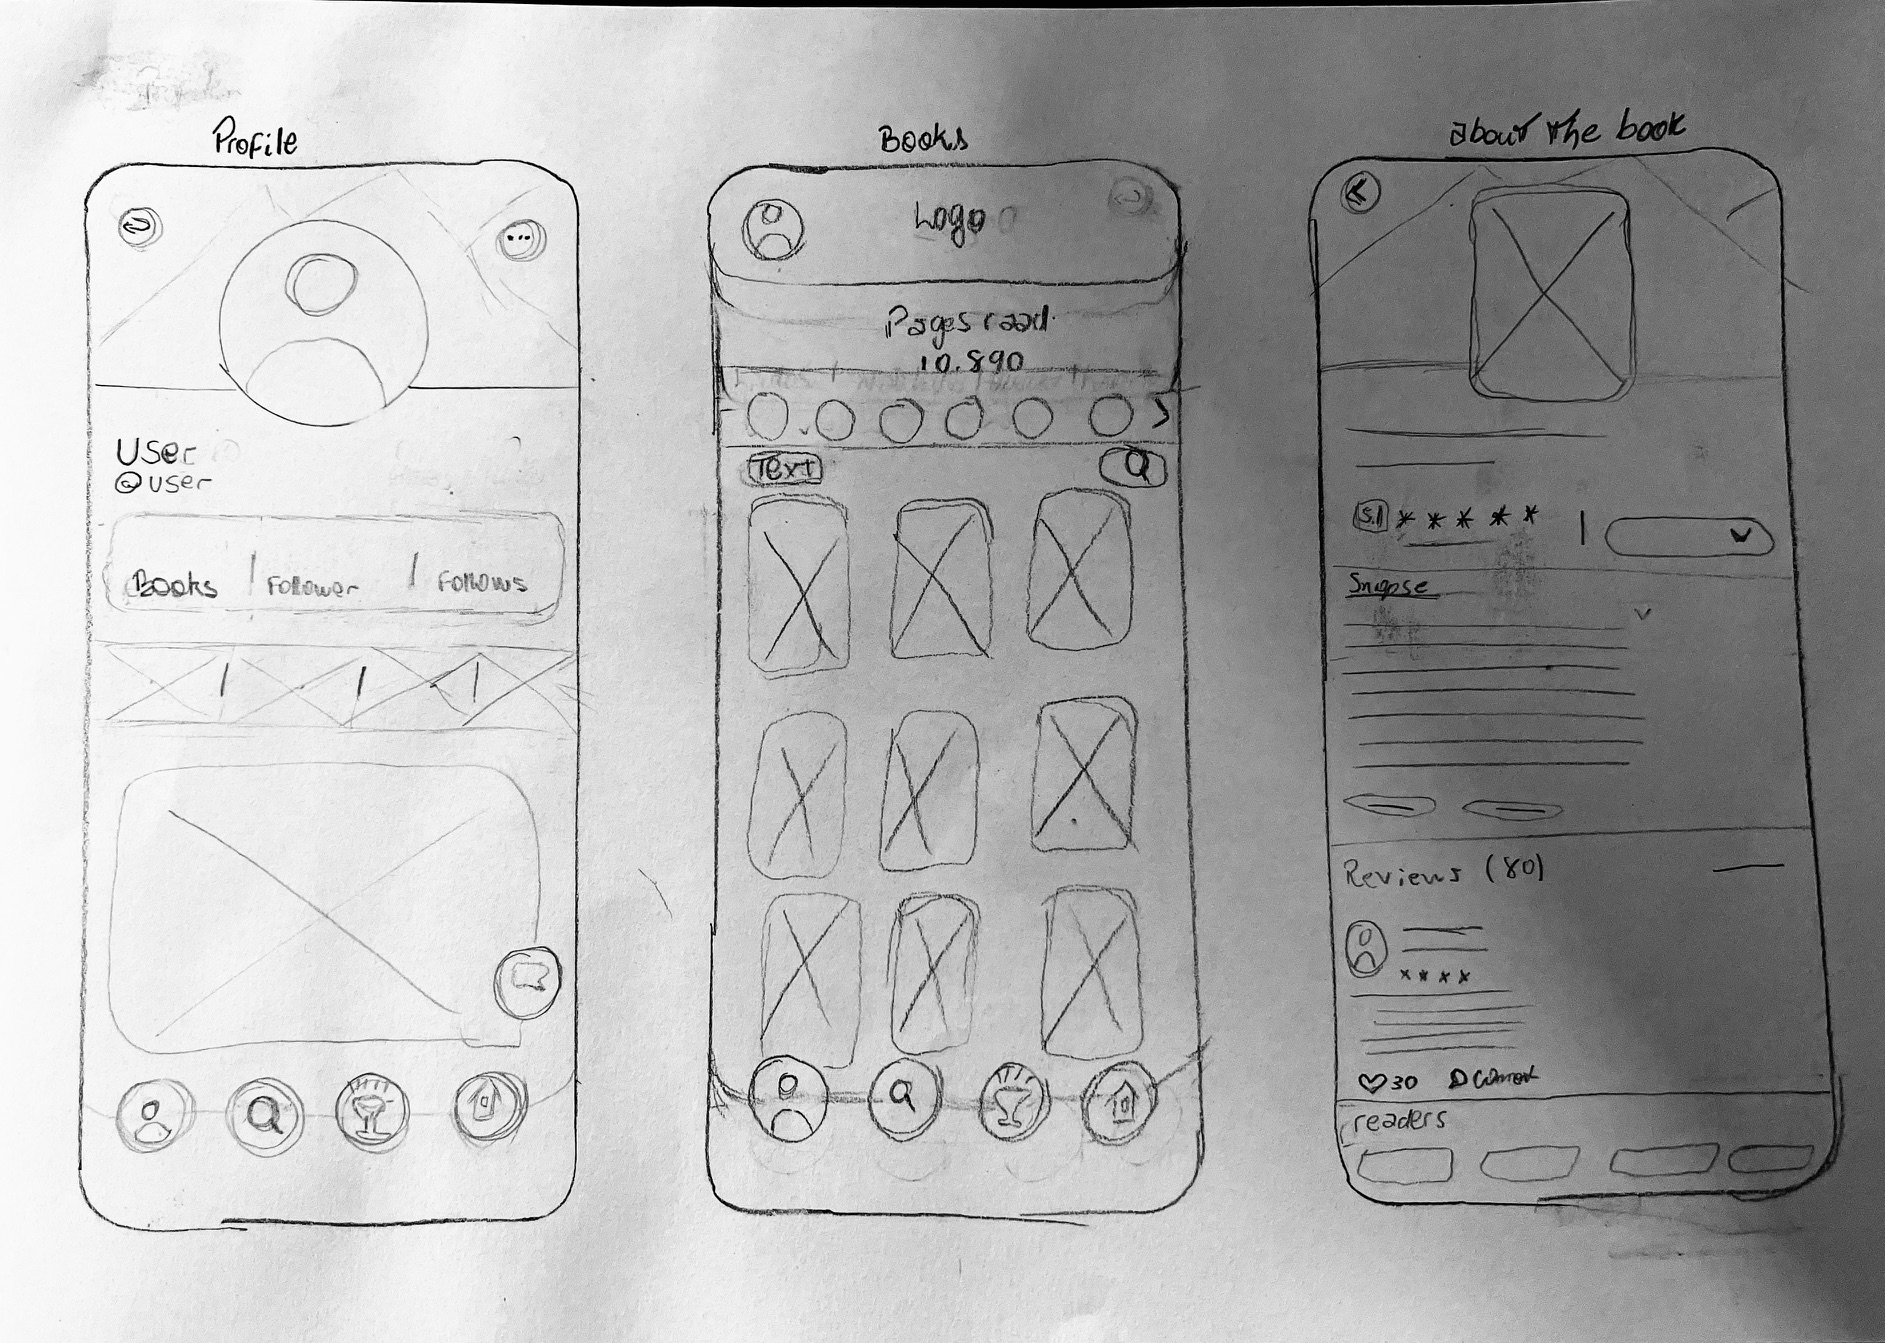 Profile
User
@user
Books | Follower | Follows
Books
Logo
Pages read
10.890
Text
about the book
5.1
Snopse
Reviews (80)
30
readers